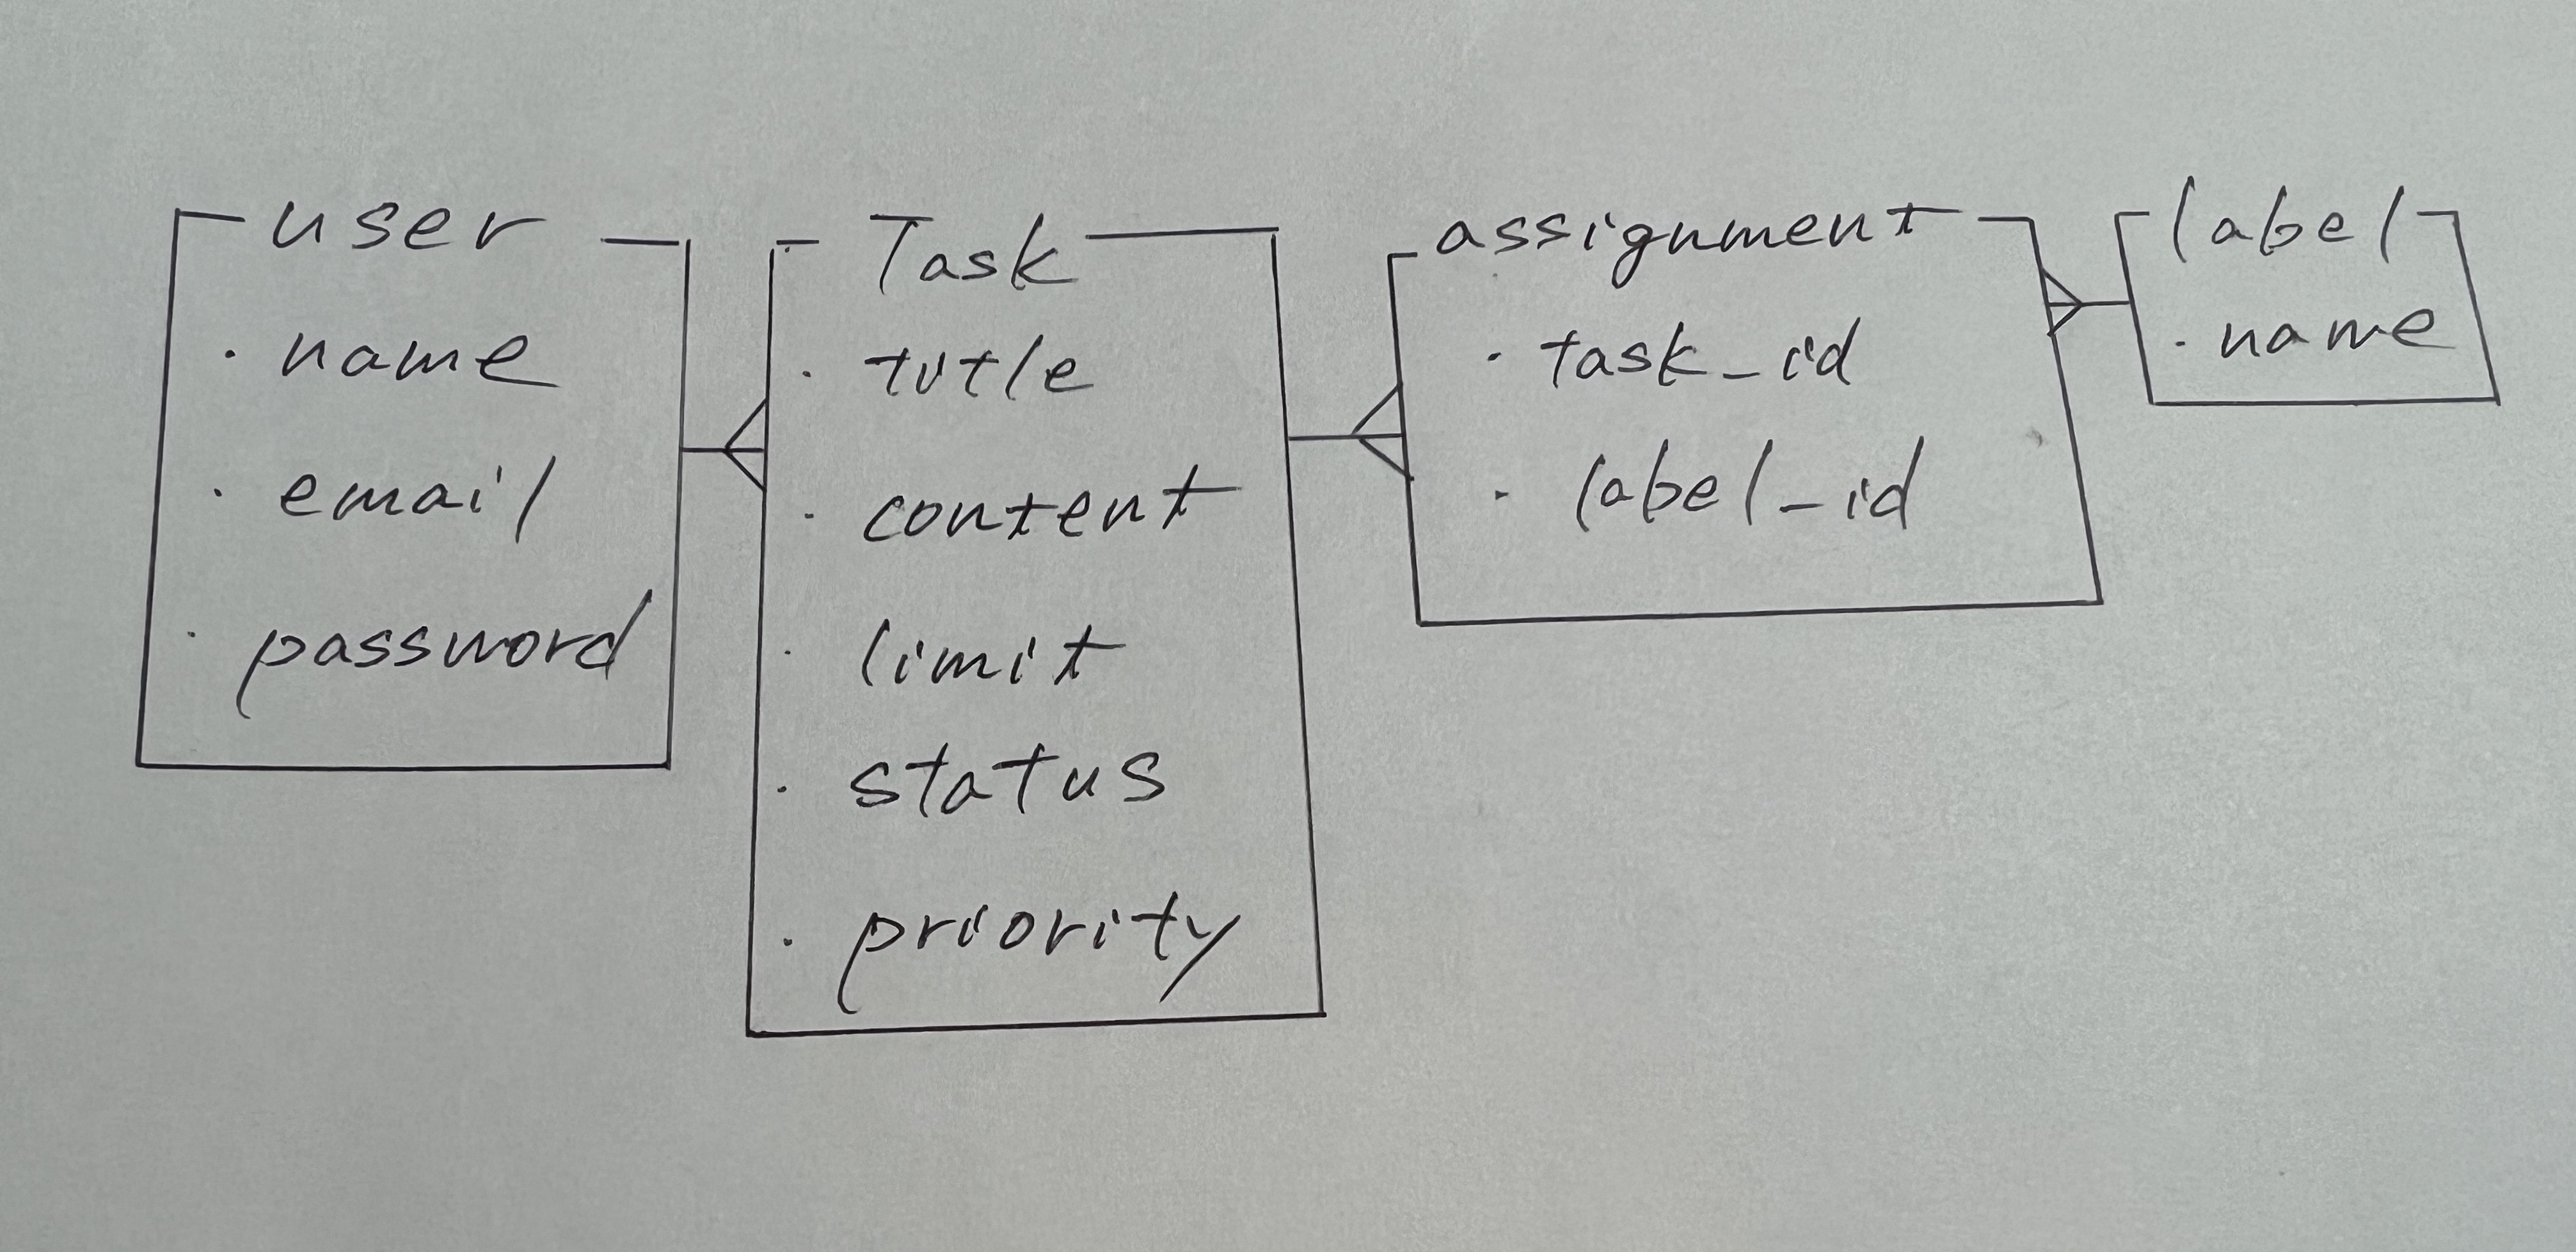 user
· name
· email
· password
Task
· tutle
· content
· limit
· status
· priority
assignment
· task_id
· label_id
label
· name